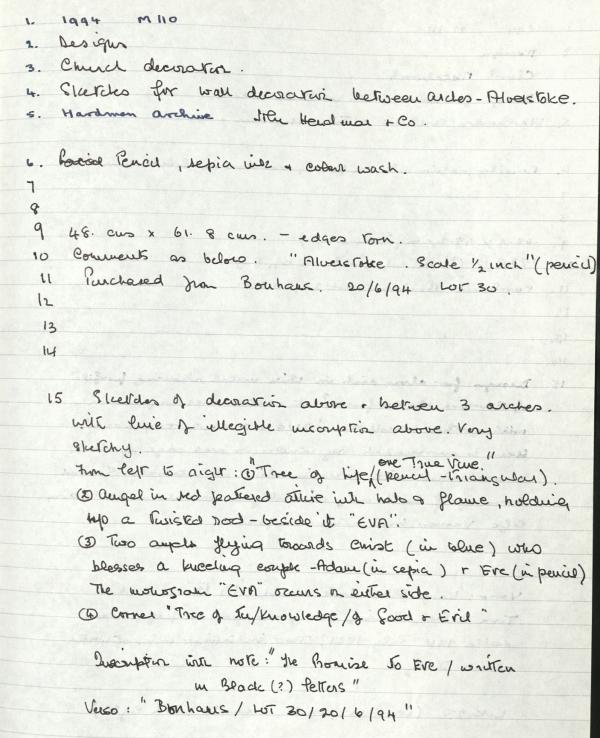 1. 1994 M 110
2. Designs
3. Church decoration.
4. Sketches for wall decoration between arches - Alverstoke.
5. Hardman archive John Hardman + Co.
6. Pencil, sepia ink + colour wash.
7
8
9 48. cms x 61. 8 cms. - edges torn.
10 Comments as below. "Alverstoke. Scale 1/2 inch" (pencil)
11 Purchased from Bonhams. 20/6/94 LOT 30.
12
13
14
15 Sketches of decoration above + between 3 arches.
with line of illegible inscription above. Very
sketchy.
From left to right: ① "Tree of life, one True Vine." (pencil - triangular).
② Angel in red feathered attire with halo & flame, holding
up a Twisted Rod - beside it "EVA".
③ Two angels flying towards Christ (in blue) who
blesses a kneeling couple - Adam (in sepia) + Eve (in pencil)
The monogram "EVA" occurs on either side.
④ Corner "Tree of the/Knowledge/of Good + Evil"
Inscription with note: "the Promise to Eve / written
in Black (?) letters"
Verso: "Bonhams / LOT 30/20/6/94"